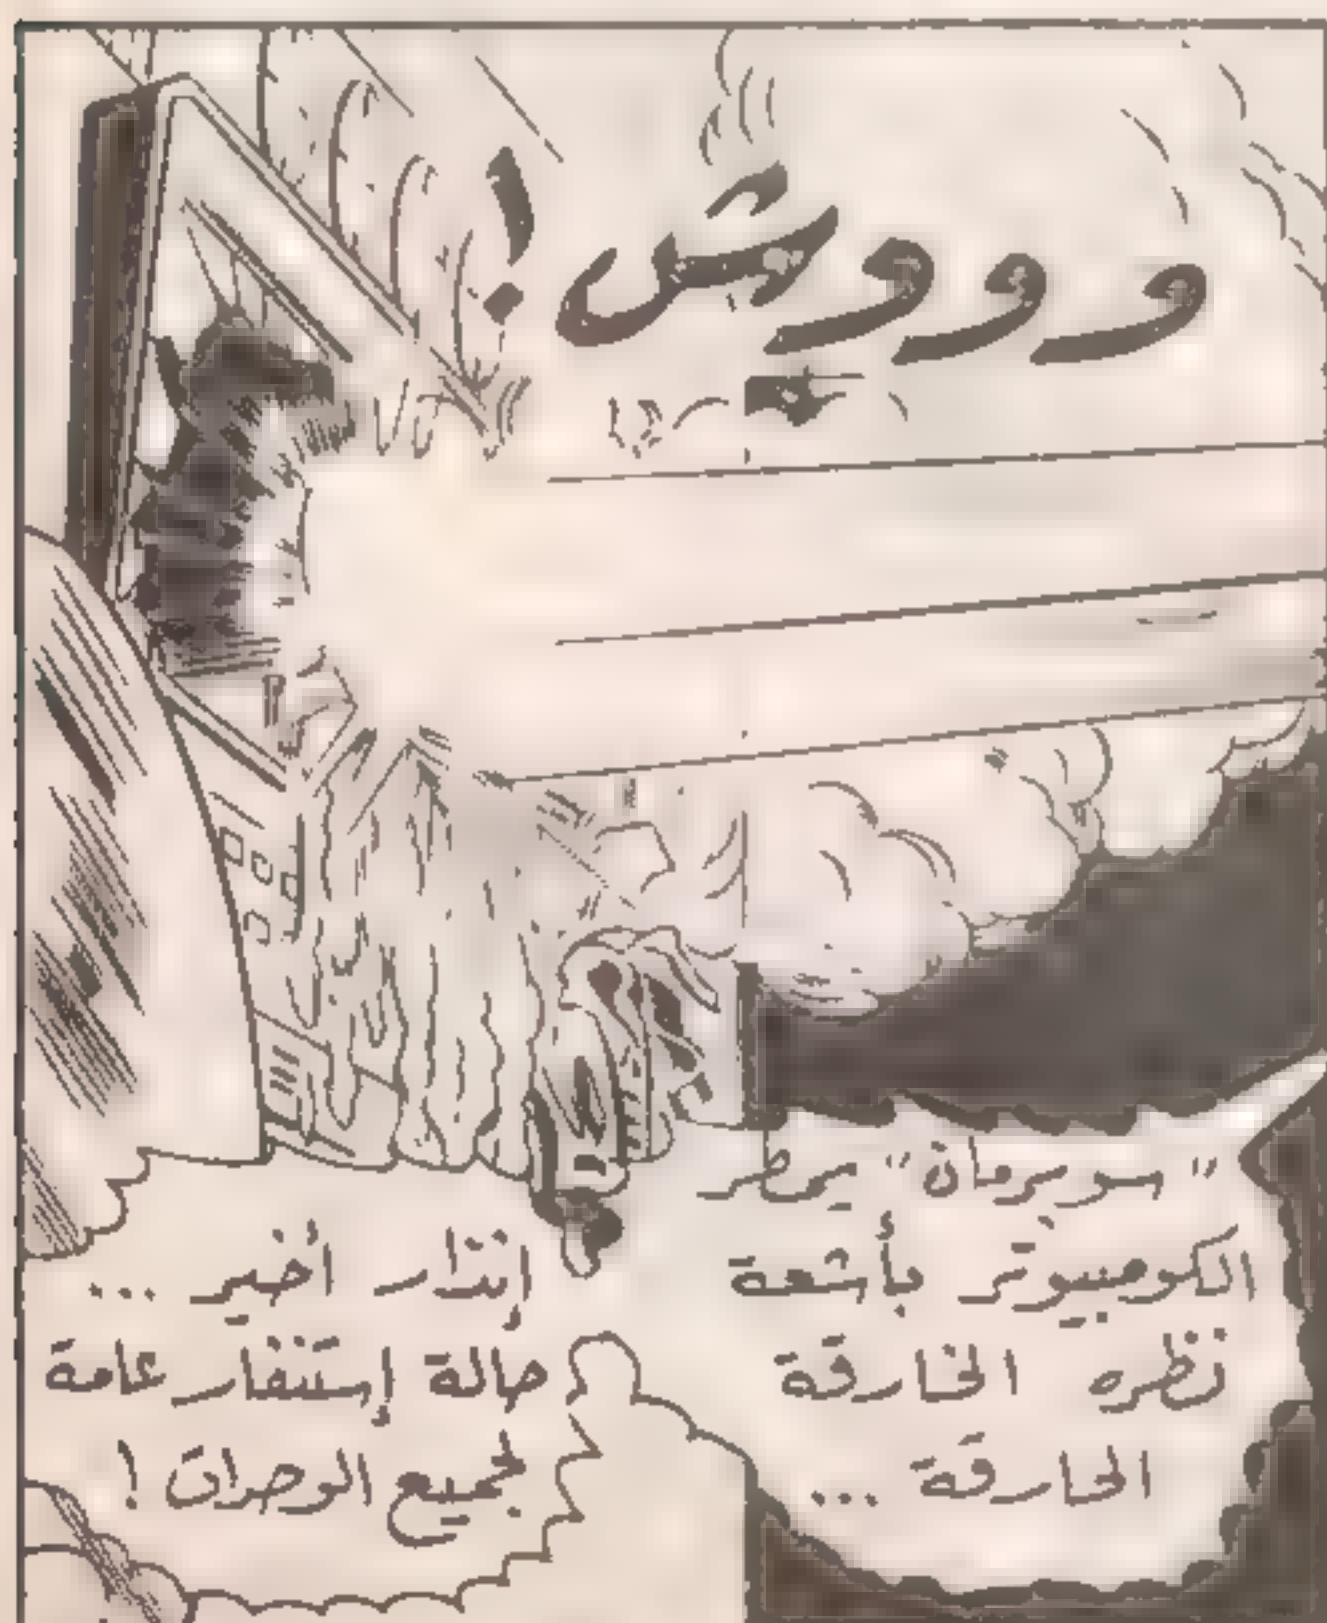 وووش !
"سوبرمان" يمطر
الكومبيوتر بأشعة
نظره الخارقة
الحارقة ...
إنذار أخير ...
حالة إستنفار عامة
لجميع الوحدات !